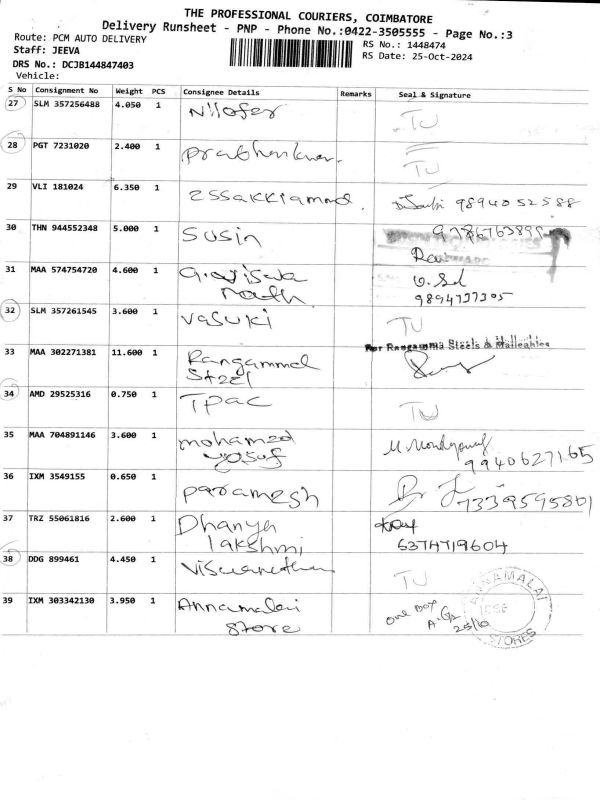 THE PROFESSIONAL COURIERS, COIMBATORE
Delivery Runsheet - PNP - Phone No.:0422-3505555 - Page No.:3
Route: PCM AUTO DELIVERY
RS No.: 1448474
Staff: JEEVA
RS Date: 25-Oct-2024
DRS No.: DCJB144847403
Vehicle:
S No Consignment No Weight PCS Consignee Details Remarks Seal & Signature
27 SLM 357256488 4.050 1 Nilofer TU
28 PGT 7231020 2.400 1 Prabhankar. TU
29 VLI 181024 6.350 1 Essakkiammal. 9894052588
30 THN 944552348 5.000 1 Susin
31 MAA 574754720 4.600 1 G.Viswa
nath
9894737305
32 SLM 357261545 3.600 1 Vasuki TU
For Rangamma Steels & Malleables
33 MAA 302271381 11.600 1 Rangammal
Steel
34 AMD 29525316 0.750 1 Tpac TU
35 MAA 704891146 3.600 1 mohamed
yosuf
9940627165
36 IXM 3549155 0.650 1 Paramesh 7339595801
37 TRZ 55061816 2.600 1 Dhanya
lakshmi
6374719604
38 DDG 899461 4.450 1 Viswanathan TU
39 IXM 303342130 3.950 1 Annamalai
Store
One Box
25/10
ANNAMALAI
STORES